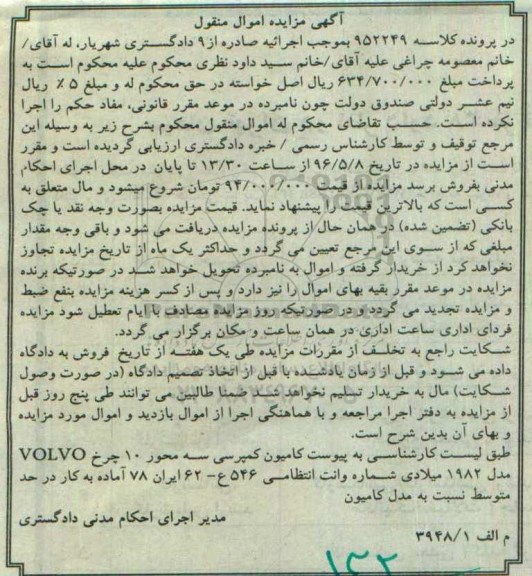 آگهی مزایده اموال منقول
در پرونده کلاسه ۹۵۲۲۴۹ بموجب اجرائیه صادره از۹ دادگستری شهریار، له آقای/
خانم معصومه چراغی علیه آقای/خانم سید داود نظری محکوم علیه محکوم است به
پرداخت مبلغ ۶۳۴/۷۰۰/۰۰۰ ریال اصل خواسته در حق محکوم له و مبلغ ۵ ٪ ریال
نیم عشر دولتی صندوق دولت چون نامبرده در موعد مقرر قانونی، مفاد حکم را اجرا
نکرده است. حسب تقاضای محکوم له اموال منقول محکوم بشرح زیر به وسیله این
مرجع توقیف و توسط کارشناس رسمی / خبره دادگستری ارزیابی گردیده است و مقرر
است از مزایده در تاریخ ۹۶/۵/۸ از ساعت ۱۳/۳۰ تا پایان در محل اجرای احکام
مدنی بفروش برسد مزایده از قیمت ۹۴/۰۰۰/۰۰۰ تومان شروع میشود و مال متعلق به
کسی است که بالاترین قیمت را پیشنهاد نماید. قیمت مزایده بصورت وجه نقد یا چک
بانکی (تضمین شده) در همان حال از پرونده مزایده دریافت می شود و باقی وجه مقدار
مبلغی که از سوی این مرجع تعیین می گردد و حداکثر یک ماه از تاریخ مزایده تجاوز
نخواهد کرد از خریدار گرفته و اموال به نامبرده تحویل خواهد شد در صورتیکه برنده
مزایده در موعد مقرر بقیه بهای اموال را نیز دارد و پس از کسر هزینه مزایده بنفع ضبط
و مزایده تجدید می گردد و در صورتیکه روز مزایده مصادف با ایام تعطیل شود مزایده
فردای اداری ساعت اداری در همان ساعت و مکان برگزار می گردد.
شکایت راجع به تخلف از مقررات مزایده طی یک هفته از تاریخ فروش به دادگاه
داده می شود و قبل از زمان یادشده با قبل از اتخاذ تصمیم دادگاه (در صورت وصول
شکایت) مال به خریدار تسلیم نخواهد شد ضمنا طالبین می توانند طی پنج روز قبل
از مزایده به دفتر اجرا مراجعه و با هماهنگی اجرا از اموال بازدید و اموال مورد مزایده
و بهای آن بدین شرح است.
طبق لیست کارشناسی به پیوست کامیون کمپرسی سه محور ۱۰ چرخ VOLVO
مدل ۱۹۸۲ میلادی شماره وانت انتظامی ۵۴۶ ع- ۶۲ ایران ۷۸ آماده به کار در حد
متوسط نسبت به مدل کامیون
مدیر اجرای احکام مدنی دادگستری
م الف ۳۹۴۸/۱
۱۳۲